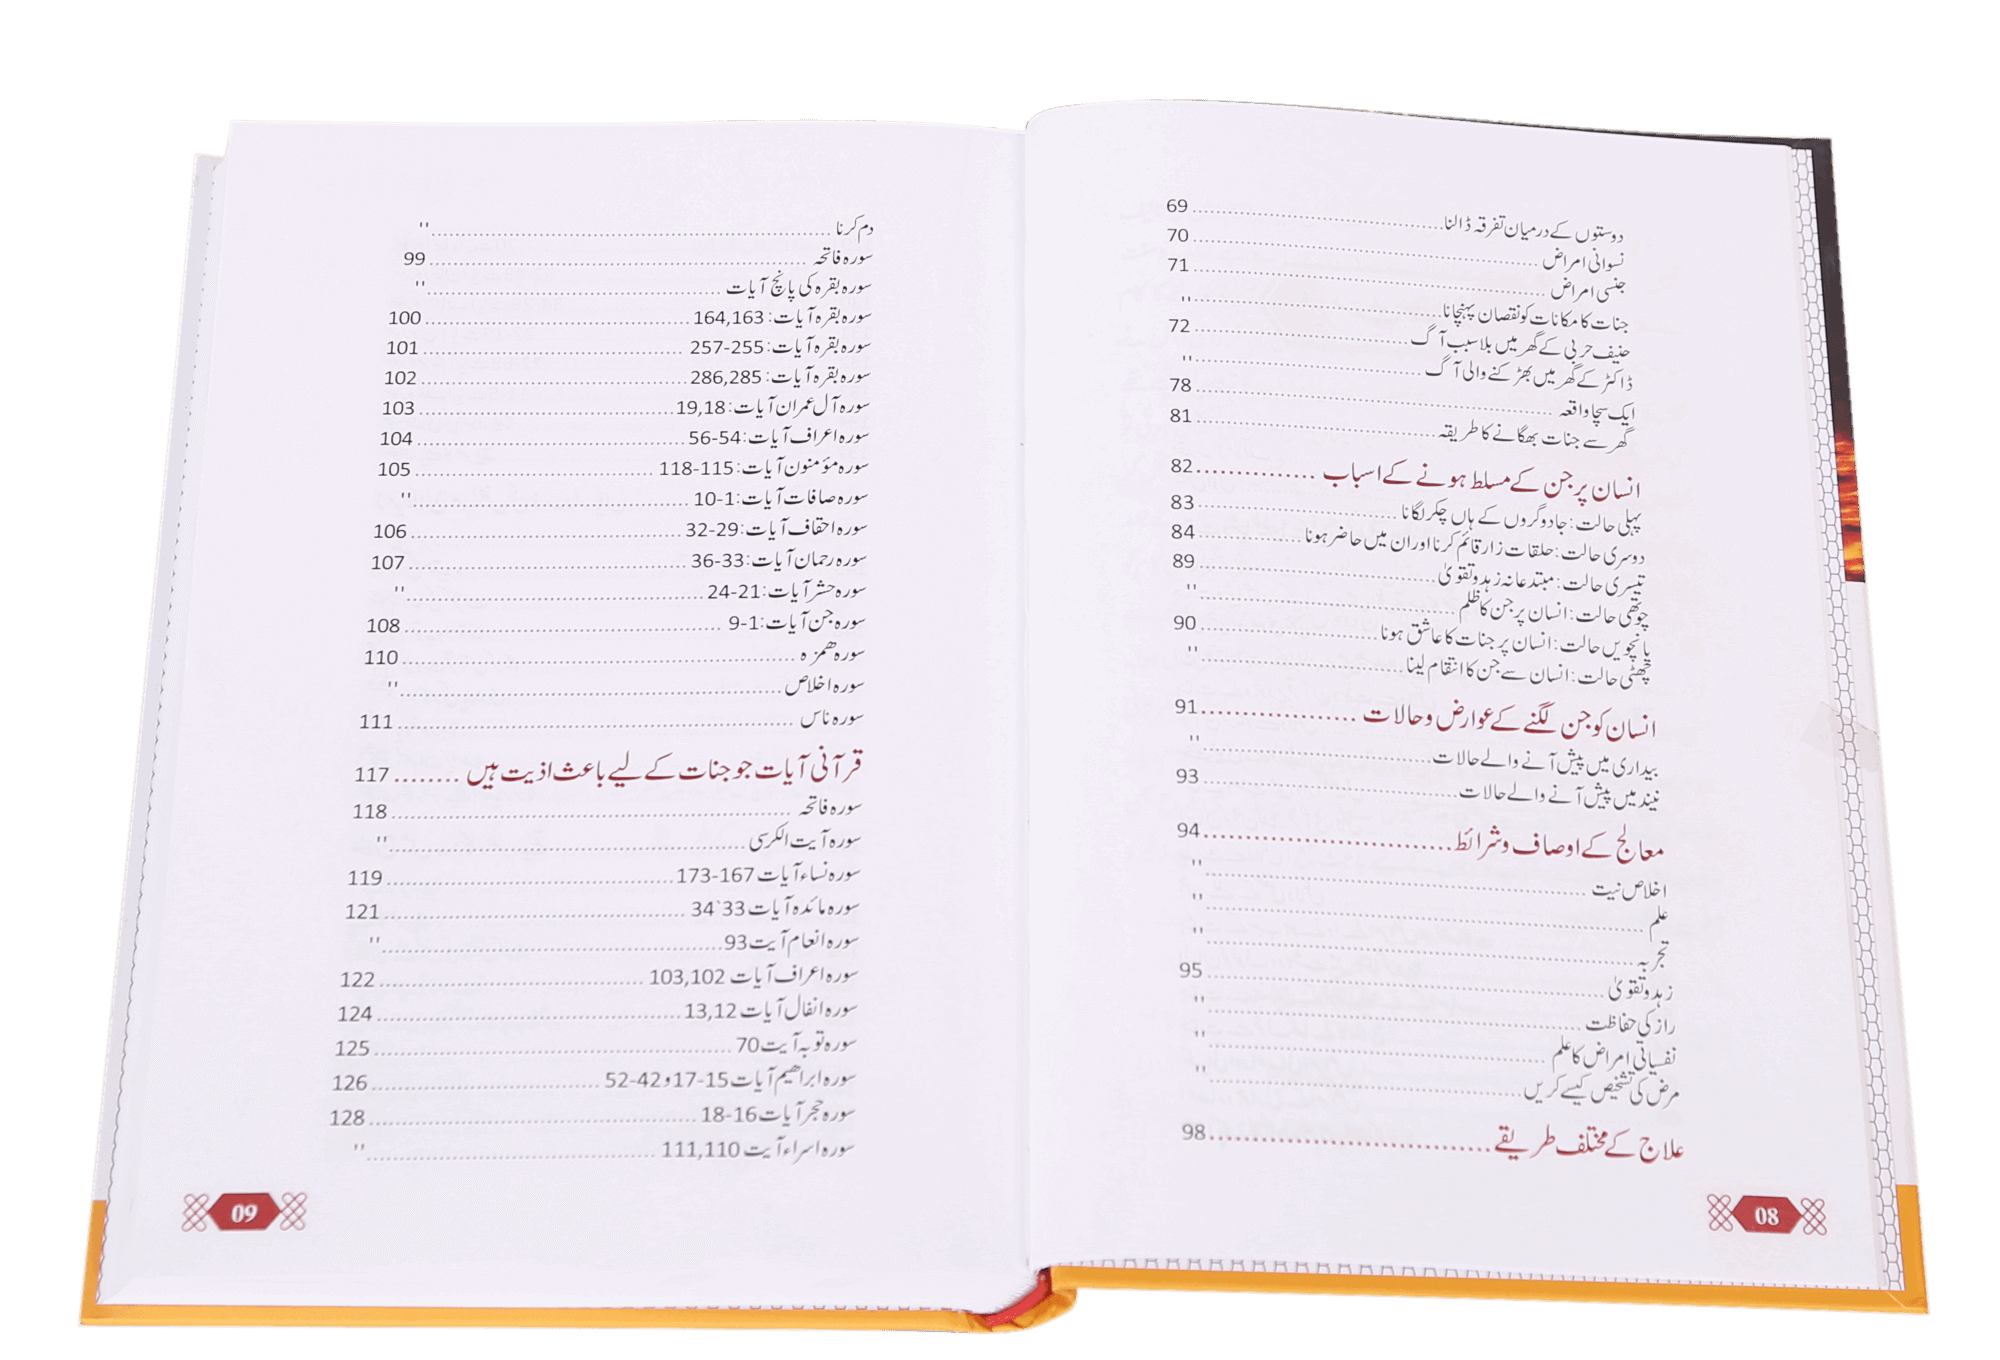 دوستوں کے درمیان تفرقہ ڈالنا........................69
نسوانی امراض........................70
جنسی امراض........................71
جنات کا مکانات کو نقصان پہنچانا........................"
حنیف حربی کے گھر میں بلا سبب آگ........................72
ڈاکٹر کے گھر میں بھڑکنے والی آگ........................"
ایک سچا واقعہ........................78
گھر سے جنات بھگانے کا طریقہ........................81
انسان پر جن کے مسلط ہونے کے اسباب..............82
پہلی حالت: جادوگروں کے ہاں چکر لگانا........................83
دوسری حالت: حلقات زار قائم کرنا اور ان میں حاضر ہونا............84
تیسری حالت: مبتدعانہ زہد و تقویٰ........................89
چوتھی حالت: انسان پر جن کا ظلم........................"
پانچویں حالت: انسان پر جنات کا عاشق ہونا........................90
چھٹی حالت: انسان سے جن کا انتقام لینا........................"
انسان کو جن لگنے کے عوارض و حالات..................91
بیداری میں پیش آنے والے حالات........................"
نیند میں پیش آنے والے حالات........................93
معالج کے اوصاف و شرائط........................94
اخلاص نیت........................"
علم........................"
تجربہ........................"
زہد و تقویٰ........................95
راز کی حفاظت........................"
نفسیاتی امراض کا علم........................"
مرض کی تشخیص کیسے کریں........................"
علاج کے مختلف طریقے........................98
08
دم کرنا........................"
سورہ فاتحہ........................99
سورہ بقرہ کی پانچ آیات........................"
سورہ بقرہ آیات: 164,163........................100
سورہ بقرہ آیات: 255-257........................101
سورہ بقرہ آیات: 286,285........................102
سورہ آل عمران آیات: 19,18........................103
سورہ اعراف آیات: 54-56........................104
سورہ مؤمنون آیات: 115-118........................105
سورہ صافات آیات: 1-10........................"
سورہ احقاف آیات: 29-32........................106
سورہ رحمان آیات: 33-36........................107
سورہ حشر آیات: 21-24........................"
سورہ جن آیات: 1-9........................108
سورہ ھمزہ........................110
سورہ اخلاص........................"
سورہ ناس........................111
قرآنی آیات جو جنات کے لیے باعث اذیت ہیں........117
سورہ فاتحہ........................118
سورہ آیت الکرسی........................"
سورہ نساء آیات 167-173........................119
سورہ مائدہ آیات 33`34........................121
سورہ انعام آیت 93........................"
سورہ اعراف آیات 103,102........................122
سورہ انفال آیات 13,12........................124
سورہ توبہ آیت 70........................125
سورہ ابراھیم آیات 15-17 و 42-52........................126
سورہ حجر آیات 16-18........................128
سورہ اسراء آیت 111,110........................"
09